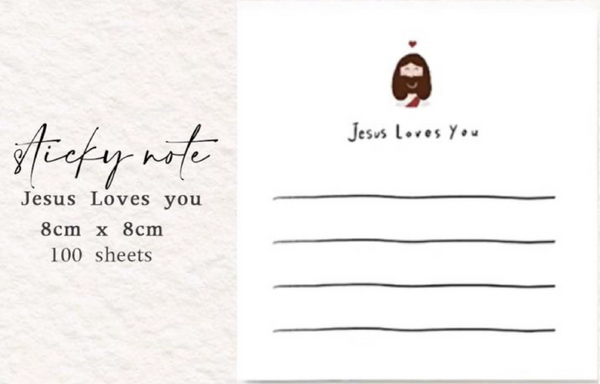 sticky note
Jesus Loves you
8cm x 8cm
100 sheets
Jesus Loves You